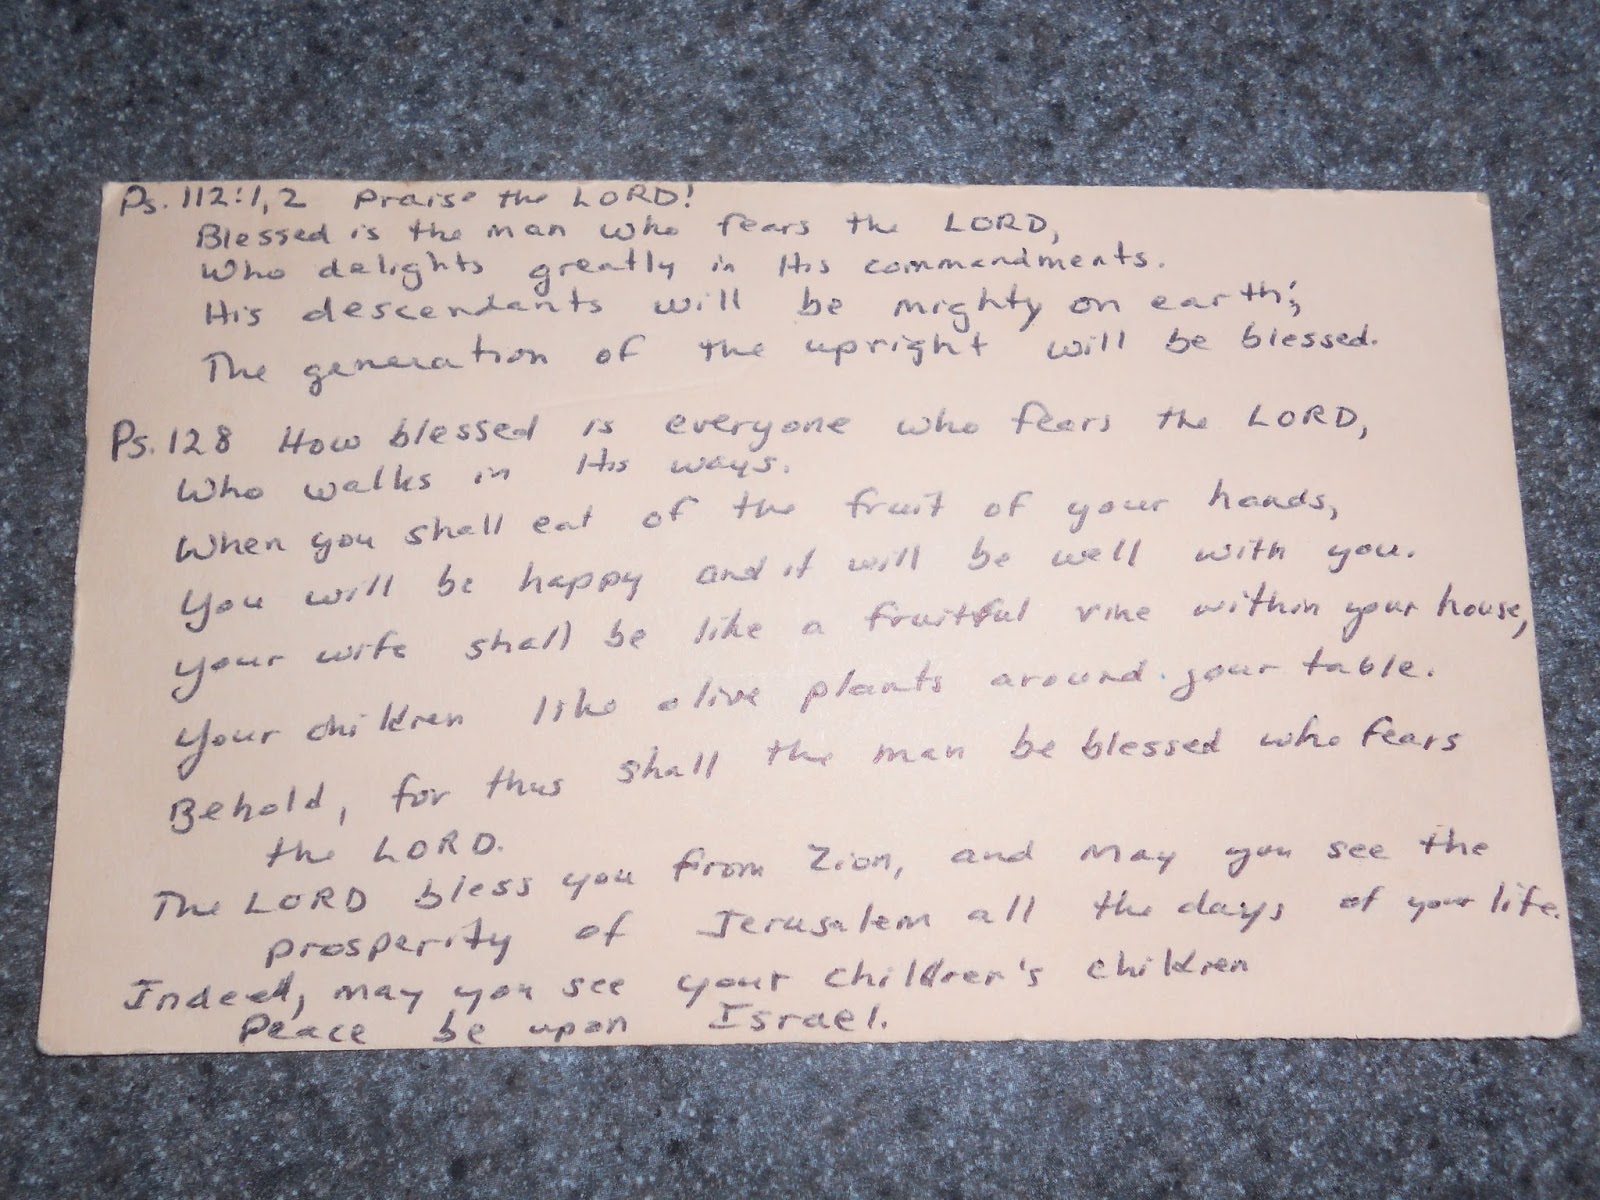 Ps. 112:1,2 Praise the LORD!
Blessed is the man who fears the LORD,
Who delights greatly in His commandments.
His descendants will be mighty on earth;
The generation of the upright will be blessed.
Ps. 128 How blessed is everyone who fears the LORD,
Who walks in His ways.
When you shall eat of the fruit of your hands,
You will be happy and it will be well with you.
Your wife shall be like a fruitful vine within your house,
Your children like olive plants around your table.
Behold, for thus shall the man be blessed who fears
the LORD.
The LORD bless you from Zion, and may you see the
prosperity of Jerusalem all the days of your life.
Indeed, may you see your children's children
Peace be upon Israel.